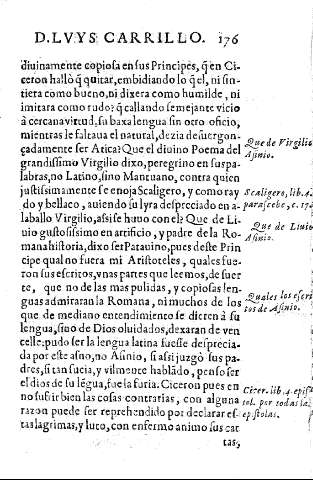 D. LVYS CARRILLO. 176
diuinamente copiosa en sus Principes, q̃ en Ci-
ceron hallò q̃ quitar, embidiando lo q̃ el, ni sin-
tiera como bueno, ni dixera como humilde, ni
imitara como rudo? q̃ callando semejante vicio
à cercana virtud, su baxa lengua sin otro oficio,
mientras le faltaua el natural, dezia desuergon-
çadamente ser Atica? Que el diuino Poema del
grandissimo Virgilio dixo, peregrino en sus pa-
labras, no Latino, sino Mantuano, contra quien
justissimamente se enoja Scaligero, y como ray
do y bellaco, auiendo su lyra despreciado en a-
laballo Virgilio, assi se huuo con el? Que de Li-
uio gustosissimo en artificio, y padre de la Ro-
mana historia, dixo ser Patauino, pues deste Prin
cipe qual no fuera mi Aristoteles, quales fue-
ron sus escritos, vnas partes que leemos, de suer
te, que no de las mas pulidas, y copiosas len-
guas admiraran la Romana, ni muchos de los
que de mediano entendimiento se dieren à su
lengua, sino de Dios oluidados, dexaran de ven
celle: pudo ser la lengua latina fuesse desprecia-
da por este asno, no Asinio, si assi juzgò sus pa-
dres, si tan sucia, y vilmente hablãdo, penso ser
el dios de su lẽgua, fue la furia. Ciceron pues en
no sufrir bien las cosas contrarias, con alguna
razon puede ser reprehendido por declarar es-
tas lagrimas, y luto, con enfermo animo sus car
tas,
Que de Virgilio
Asinio.
Scaligero, lib. 4.
parascebe, c. 174
Que de Liuio
Asinio.
Quales los escri
tos de Asinio.
Cicer. lib. 4. epis
tol. por todas las
epistolas.